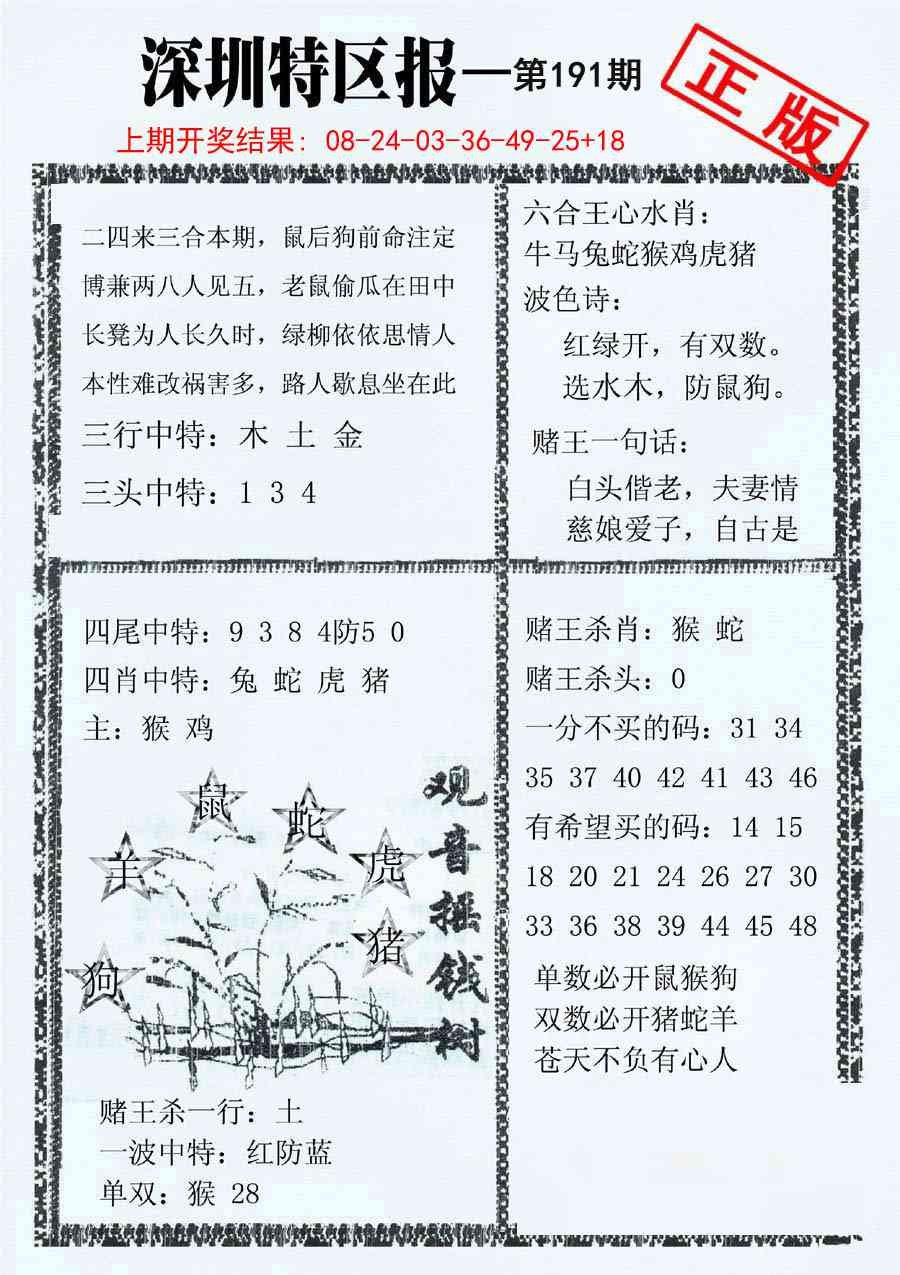 深圳特区报—第191期
正版
上期开奖结果: 08-24-03-36-49-25+18
二四来三合本期，鼠后狗前命注定
博兼两八人见五，老鼠偷瓜在田中
长凳为人长久时，绿柳依依思情人
本性难改祸害多，路人歇息坐在此
三行中特：木 土 金
三头中特：1 3 4
六合王心水肖：
牛马兔蛇猴鸡虎猪
波色诗：
红绿开，有双数。
选水木，防鼠狗。
赌王一句话：
白头偕老，夫妻情
慈娘爱子，自古是
四尾中特：9 3 8 4防5 0
四肖中特：兔 蛇 虎 猪
主：猴 鸡
鼠
蛇
羊
虎
猪
狗
观音摇钱树
赌王杀一行：土
一波中特：红防蓝
单双：猴 28
赌王杀肖：猴 蛇
赌王杀头：0
一分不买的码：31 34
35 37 40 42 41 43 46
有希望买的码：14 15
18 20 21 24 26 27 30
33 36 38 39 44 45 48
单数必开鼠猴狗
双数必开猪蛇羊
苍天不负有心人